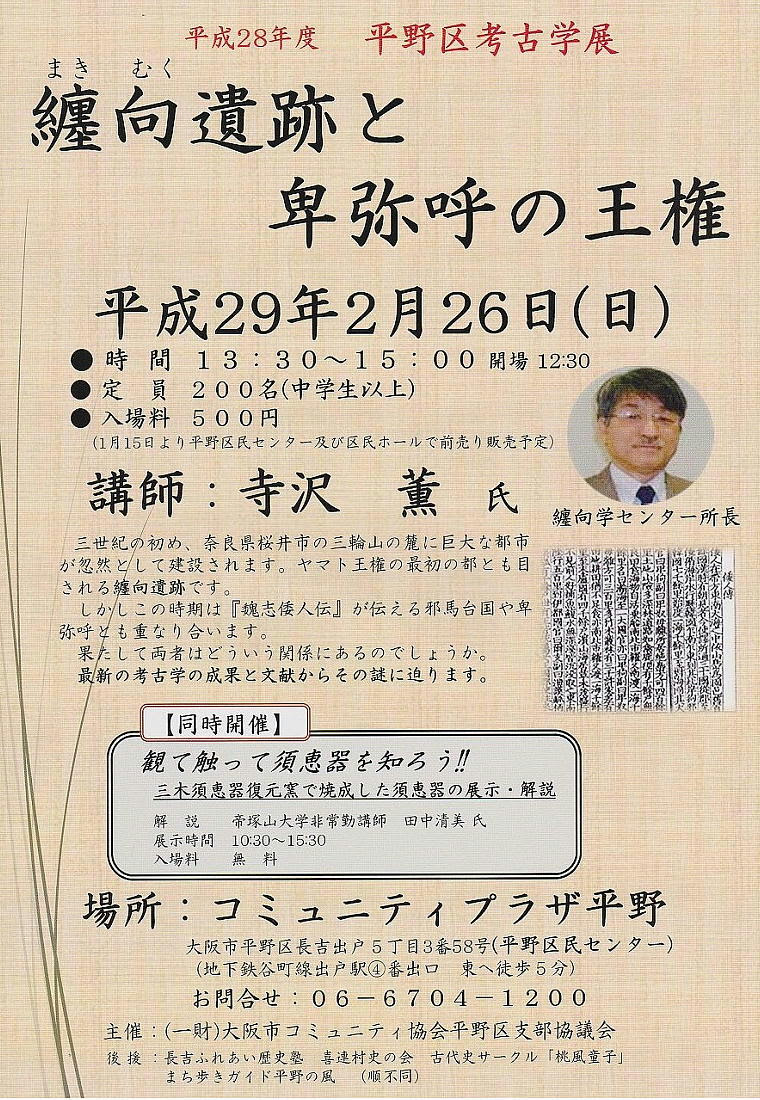 平成28年度 平野区考古学展
まき むく
纏向遺跡と
卑弥呼の王権
平成29年2月26日(日)
● 時 間 １３：３０～１５：００ 開場 12:30
● 定 員 ２００名(中学生以上)
● 入場料 ５００円
(1月15日より平野区民センター及び区民ホールで前売り販売予定)
講師：寺沢 薫 氏
纏向学センター所長
三世紀の初め、奈良県桜井市の三輪山の麓に巨大な都市
が忽然として建設されます。ヤマト王権の最初の都とも目
される纏向遺跡です。
しかしこの時期は『魏志倭人伝』が伝える邪馬台国や卑
弥呼とも重なり合います。
果たして両者はどういう関係にあるのでしょうか。
最新の考古学の成果と文献からその謎に迫ります。
【同時開催】
観て触って須恵器を知ろう!!
三木須恵器復元窯で焼成した須恵器の展示・解説
解 説 帝塚山大学非常勤講師 田中清美 氏
展示時間 10:30～15:30
入場料 無 料
場所：コミュニティプラザ平野
大阪市平野区長吉出戸５丁目3番58号(平野区民センター)
(地下鉄谷町線出戸駅④番出口 東へ徒歩５分)
お問合せ：０６－６７０４－１２００
主催：(一財)大阪市コミュニティ協会平野区支部協議会
後援：長吉ふれあい歴史塾 喜連村史の会 古代史サークル「桃風童子」
まち歩きガイド平野の風 （順不同）